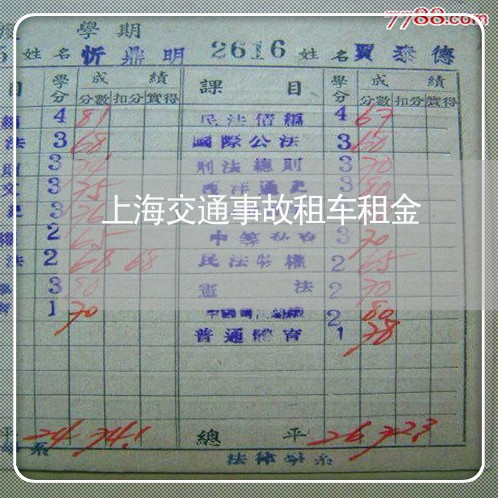 7788.com
學期
姓名 忻鼎明 2616 姓名 賈泰德
目 學分 成績 課目 學分 成績
分數 扣分 實得 分數 扣分 實得
4 81 民法債編 4 67
法 3 68 國際公法 3 60
3 刑法總則 3 70
3 75 西洋通史 3 80
上海交通事故租车租金
2 65 3 70
法 2 68 68 民法物權 2 65
3 80 憲法 2 70
1 70 2 80
普通體育 1 78
平 24 74.1 總平 26 72.3
系 法律學系